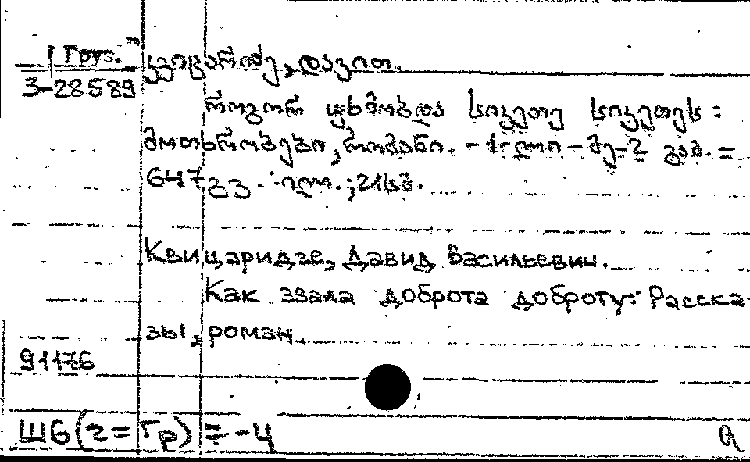 Груз.
3-28589
კვიცარიძე, დავით.
როგორ უხმობდა სიკეთე სიკეთეს :
მოთხრობები, რომანი. -
647 გვ. : ილ. ; 21 სმ.
Квицаридзе, Давид Васильевич.
Как звала доброта доброту: Расска-
зы, роман.
91176
Ш6(2=Гр)7-4